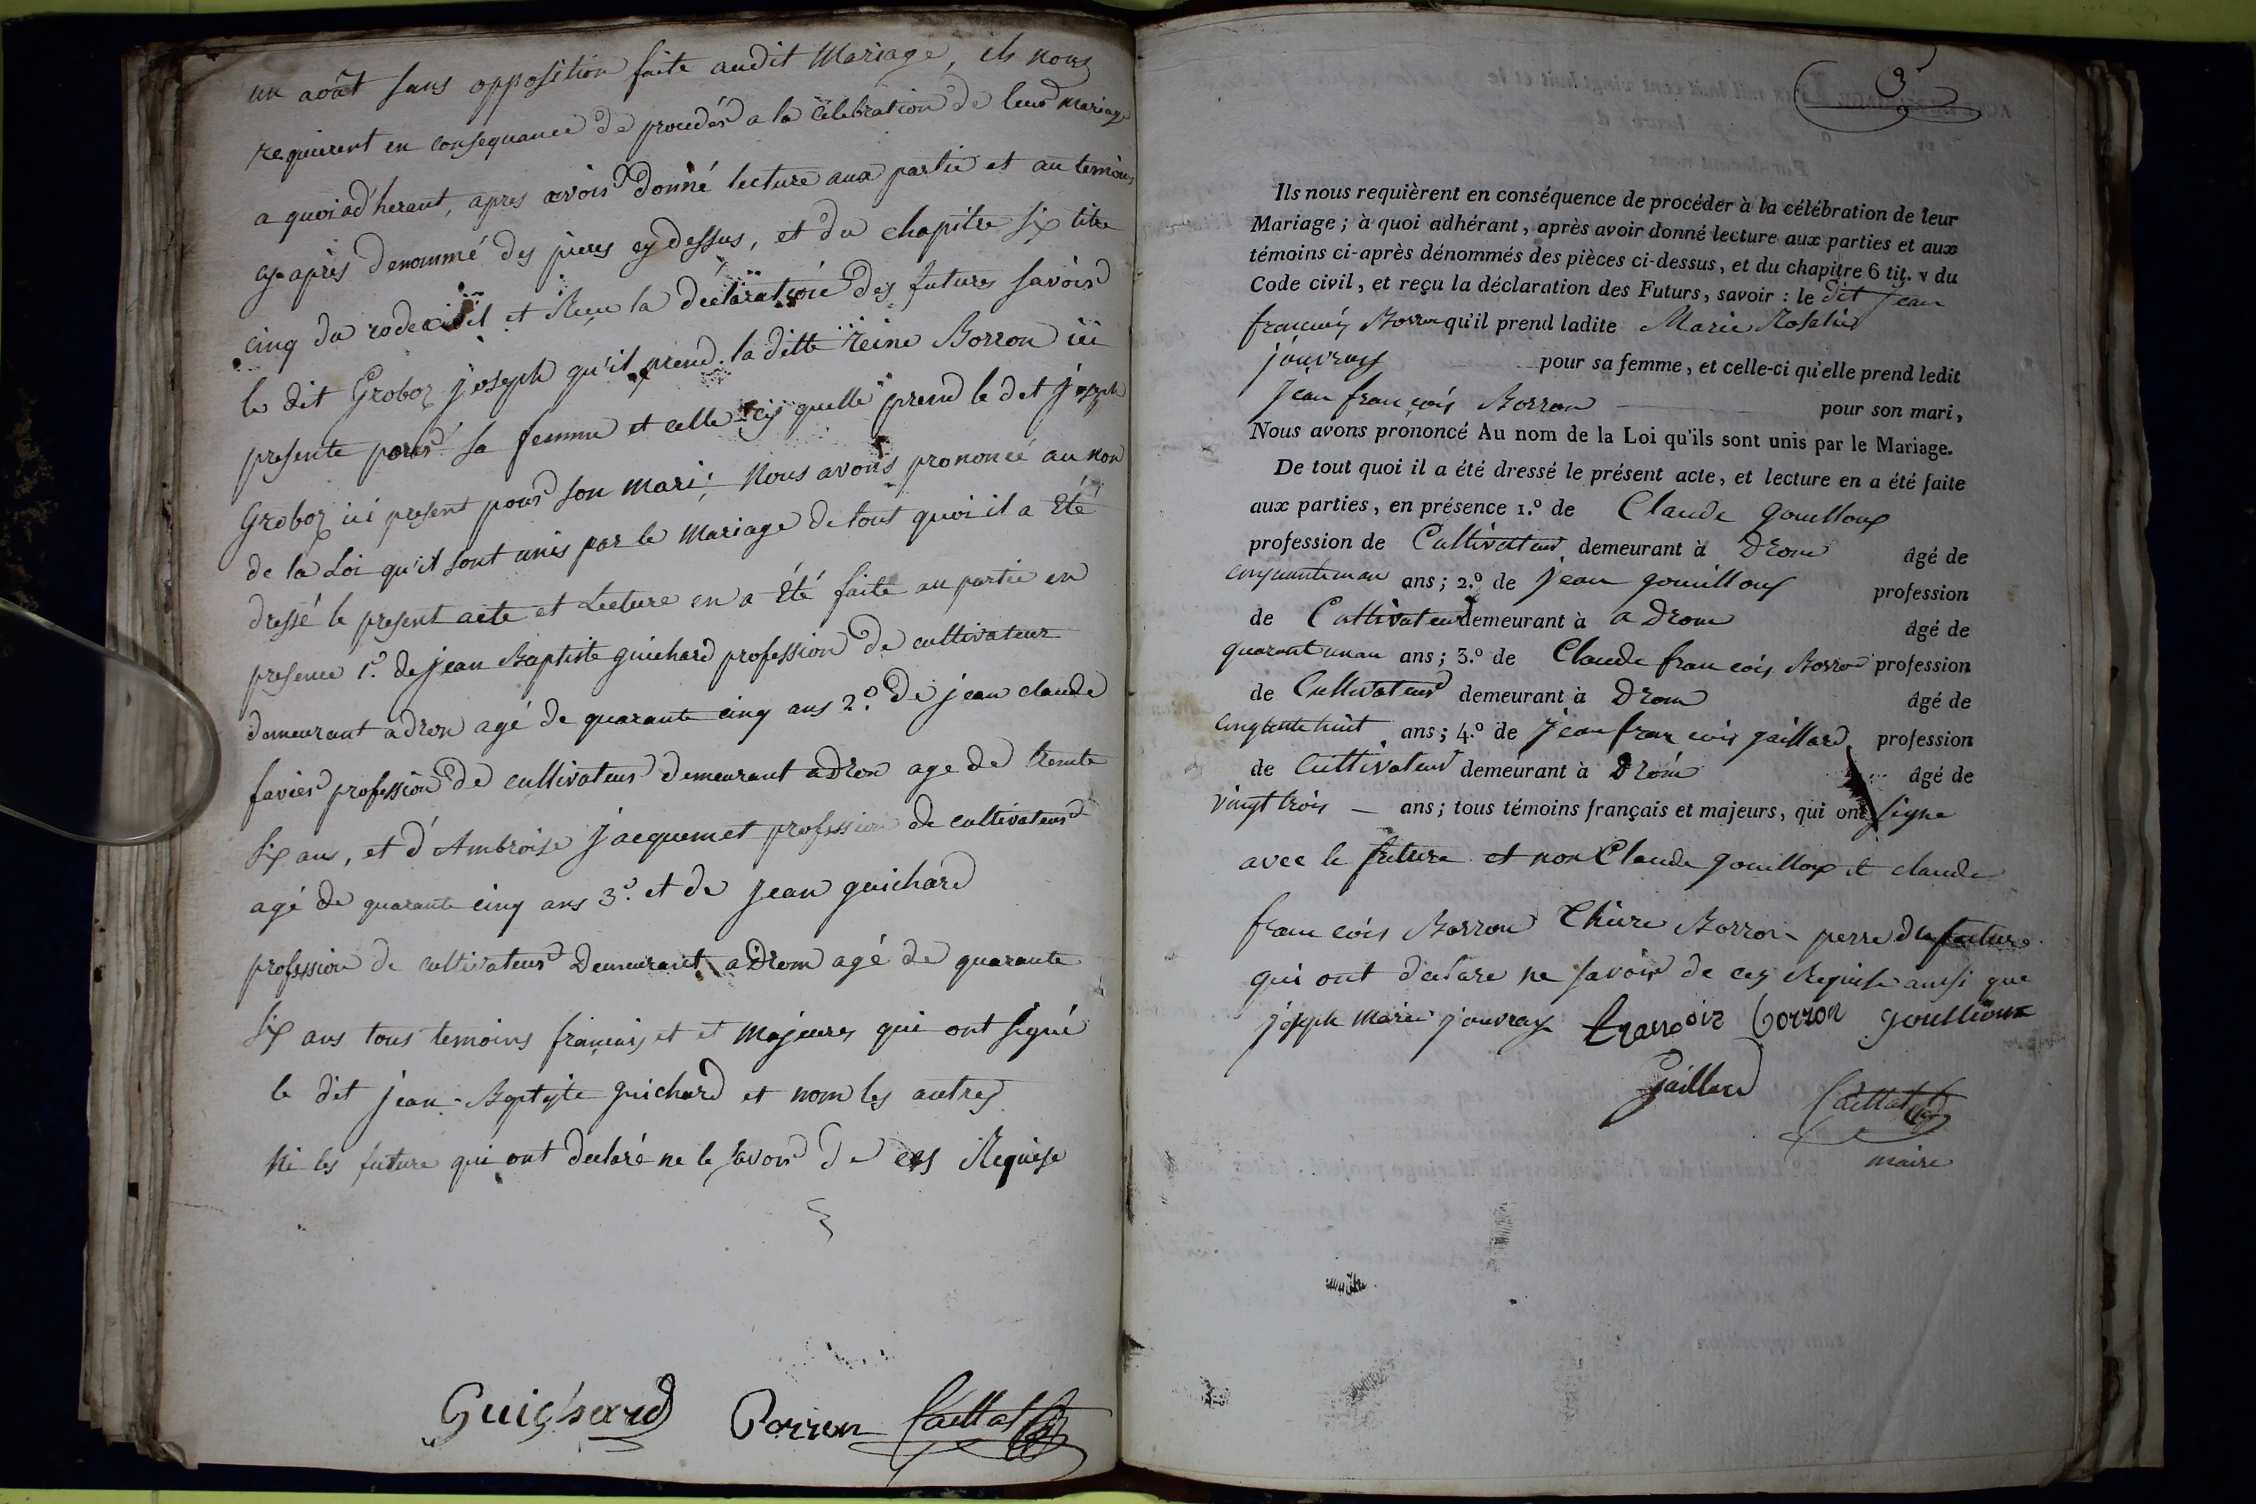 un août sans opposition faite audit Mariage, ils nous
requierent en consequance de procédér a la Célebration de leur mariage
a quoi ad'herant, apres avoir donné lecture aux partie et au temoins
cy-après denommé des pieces cy dessus, et du chapitre six titre
cinq du code civil et Reçu la déclaration des futures savoir
le dit Groboz joseph qu'il prend la ditte reine Borron ici
presente pour sa femme et celle cy quelle prend le dit joseph
Groboz ici present pour son mari; Nous avons prononcé au non
de la Loi qu'il sont unis par le mariage de tout quoi il a Eté
dressé le present acte et Lecture en a été faite au partie en
presence 1.º de jean Baptiste guichard profession de cultivateur
demeurant a dron agé de quarante cinq ans 2.º de jean claude
favier profession de cultivateur demeurant a Dron age de trente
six ans, et d'Ambroise jacquemet profession de cultivateur
agé de quarante cinq ans 3.º et de jean guichard
profession de cultivateur Demeurant a Drom agé de quarante
six ans tous temoins francais et et Majeures qui ont signé
le dit jean-Baptiste guichard et nom les autres
Ni les future qui ont declaré ne le savoir de ces Requise
Guichard Borron Caillat
Ils nous requièrent en conséquence de procéder à la célébration de leur
Mariage; à quoi adhérant, après avoir donné lecture aux parties et aux
témoins ci-après dénommés des pièces ci-dessus, et du chapitre 6 tit. v du
Code civil, et reçu la déclaration des Futurs, savoir : le dit jean
francois Borron qu'il prend ladite Marie Rosalie
jouvray pour sa femme, et celle-ci qu'elle prend ledit
jean francois Borron pour son mari,
Nous avons prononcé Au nom de la Loi qu'ils sont unis par le Mariage.
De tout quoi il a été dressé le présent acte, et lecture en a été faite
aux parties, en présence 1.º de Claude gouilloux
profession de Cultivateur demeurant à Drom âgé de
cinquante un an ans; 2.º de jean gouilloux profession
de Cultivateur demeurant à a Drom âgé de
quarant un an ans; 3.º de Claude francois Borron profession
de Cultivateur demeurant à Drom âgé de
cinqtente huit ans; 4.º de jean francois gaillard profession
de Cultivateur demeurant à Drom âgé de
vingt trois — ans; tous témoins français et majeurs, qui ont signe
avec le future et non Claude gouilloux et claude
francois Borron Borron perre de future
qui ont declare ne savoir de ces Requise ainsi que
joseph Marie jouvray francois borron gouilloux
gaillard Caillat
maire